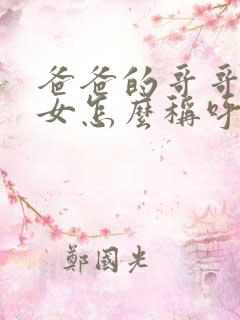 爸爸的哥哥
女怎麼稱呼
鄭國光